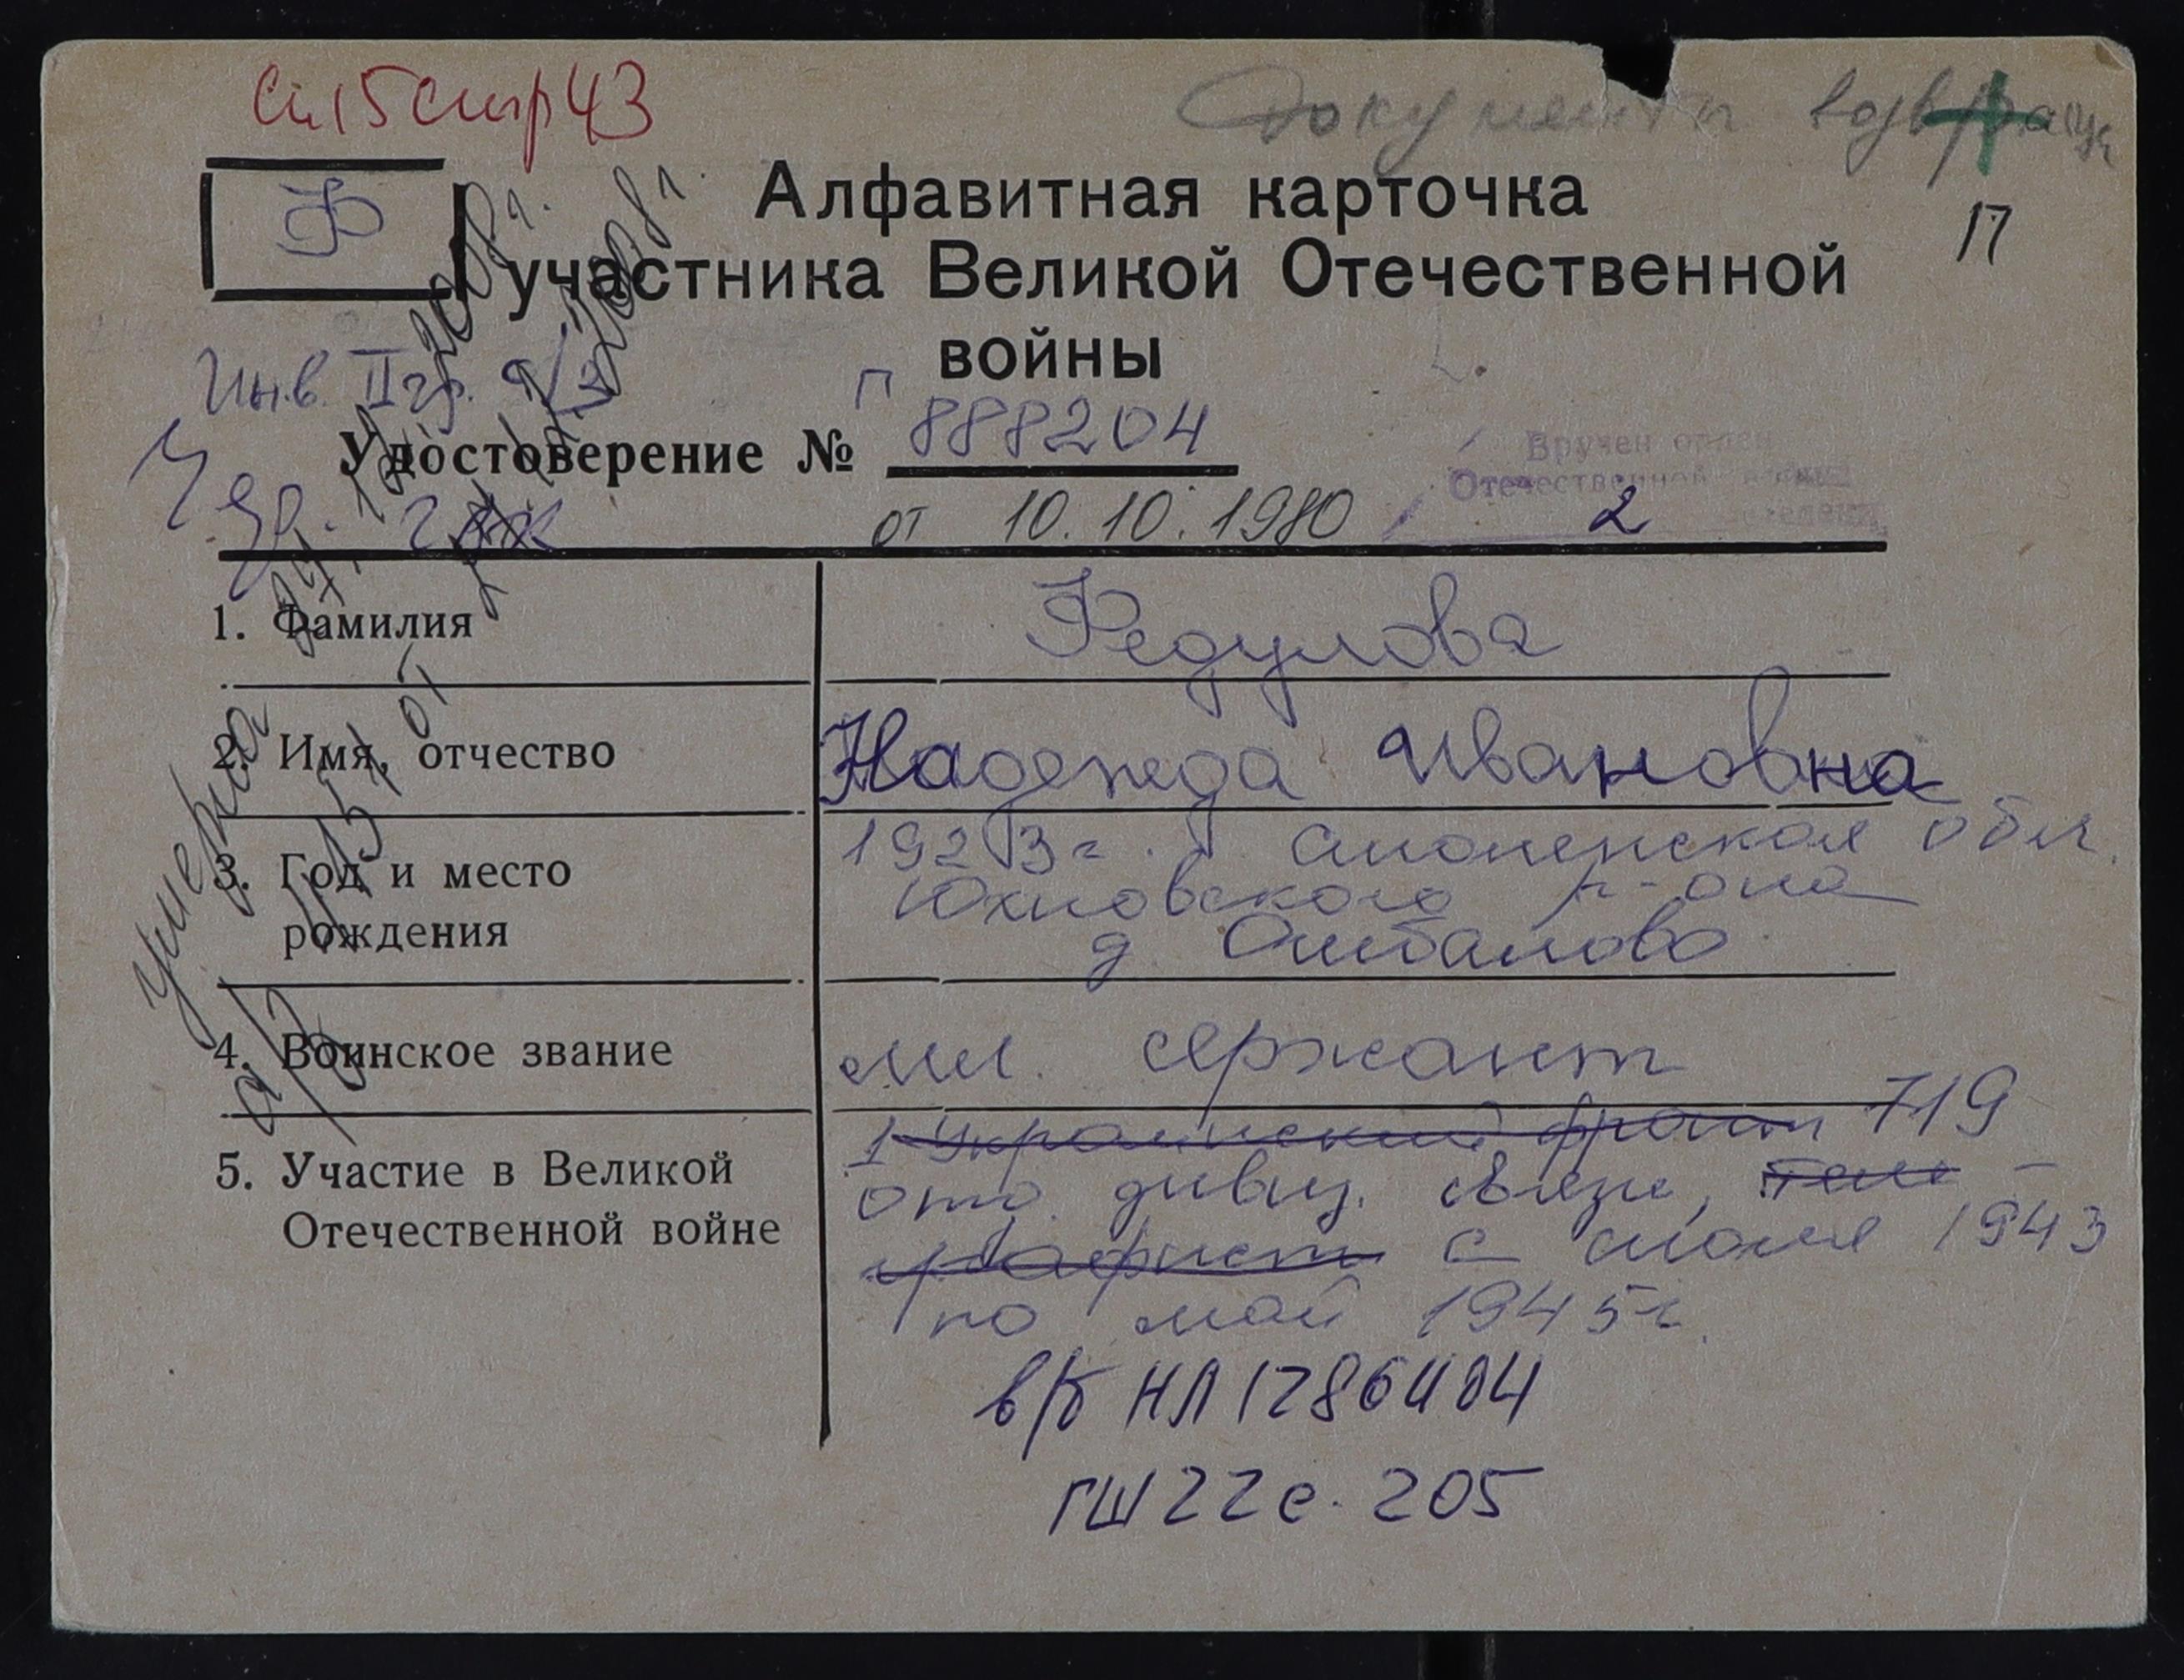 Сп15стр43
Документы возвращ
Ф
Алфавитная карточка
17
участника Великой Отечественной
войны
Инв. II гр.
П 888204
Удостоверение №
от 10.10.1980
Вручен орден
Отечественной войны
2 степени
1. Фамилия
Федулова
2. Имя, отчество
Надежда Ивановна
3. Год и место
рождения
1923г. Смоленская обл.
Юхновского р-она
д.
4. Воинское звание
мл. сержант
5. Участие в Великой
Отечественной войне
1 Украинский фронт 719
отд. дивиз. связи, теле
графист с июля 1943
по май 1945г.
в/б НЛ 1286404
ГШ 22 с. 205
Умерла